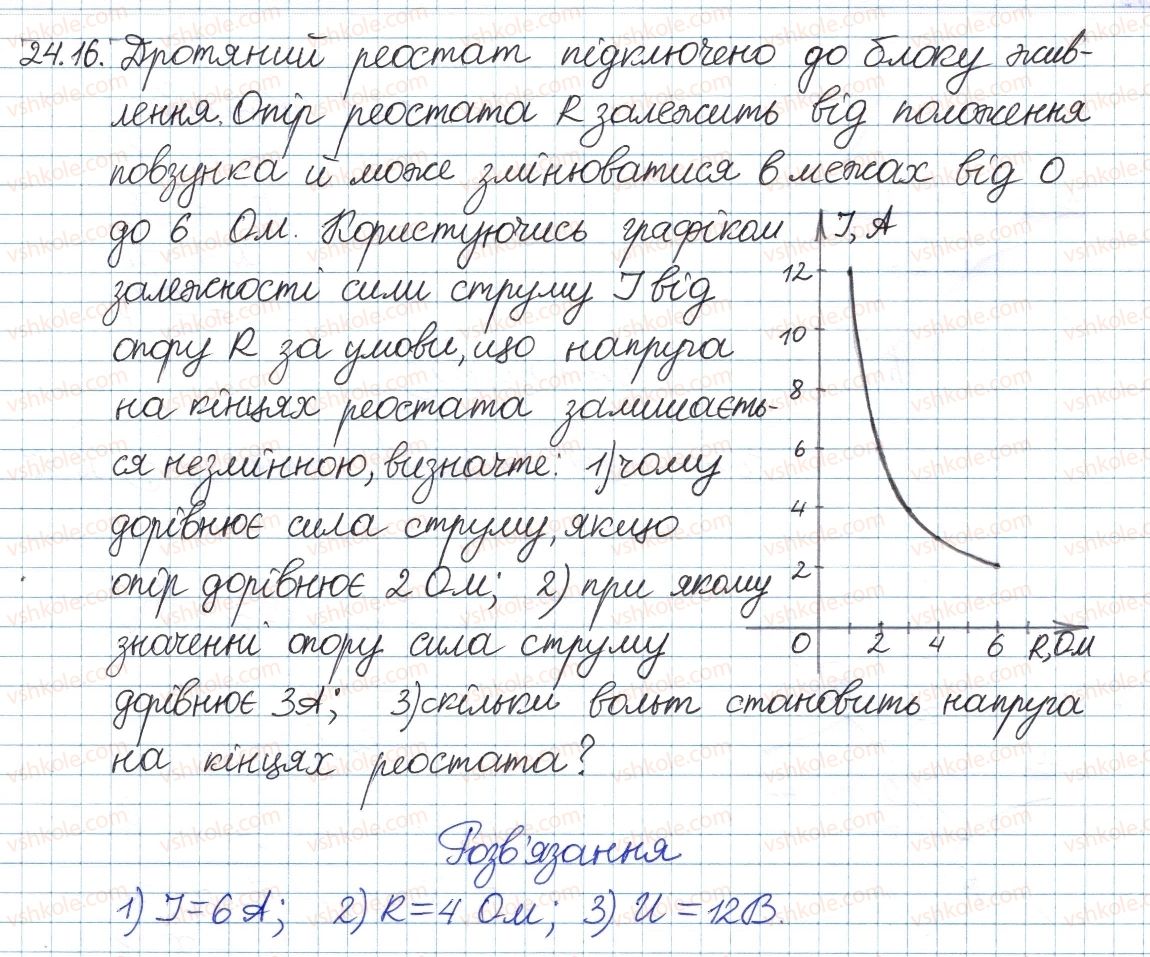 24.16. Дротяний реостат підключено до блоку жив-
лення. Опір реостата R залежить від положення
повзунка й може змінюватися в межах від 0
до 6 Ом. Користуючись графіком
залежності сили струму I від
опору R за умови, що напруга
на кінцях реостата залишаєть-
ся незмінною, визначте: 1) чому
дорівнює сила струму, якщо
опір дорівнює 2 Ом; 2) при якому
значенні опору сила струму
дорівнює 3А; 3) скільки вольт становить напруга
на кінцях реостата?
I, А
12
10
8
6
4
2
0 2 4 6 R, Ом
Розв'язання
1) I = 6 А; 2) R = 4 Ом; 3) U = 12В.
vshkole.com